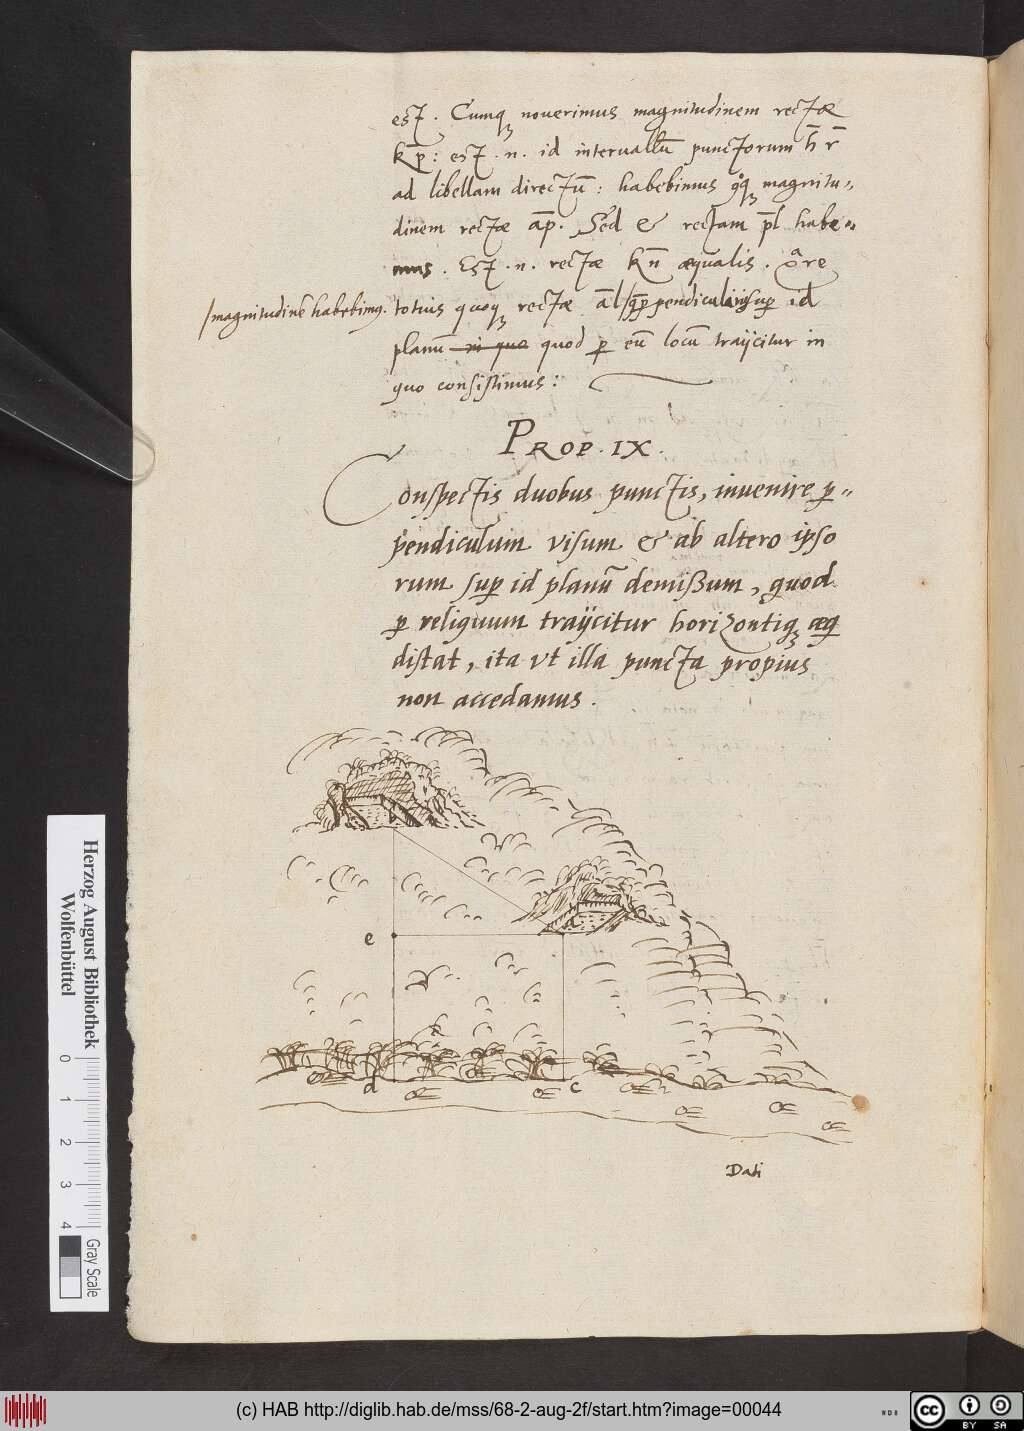 est. Cumq nouerimus magnitudinem rectæ
k̄p: est .n. id interuallū punctorum h̄r̄
ad libellam directū: habebimus qq magnitu=
dinem rectæ āp. Sed & rectam p̄l habe=
mus. Est .n. rectæ kn̄ æqualis. Qare
/magnitudinē habebimq.
totius quoq rectæ āl/ perpendicularis sup id
planū in quo quod p eū locū traijcitur in
quo consistimus:
PROP. IX.
Conspectis duobus punctis, inuenire p=
pendiculum visum & ab altero ipso
rum sup id planū demißum, quod
p reliquum traijcitur horizontiq æq
distat, ita vt illa puncta propius
non accedamus.
b
a
e
d
c
Dati
Herzog August Bibliothek
Wolfenbüttel
0 1 2 3 4
Gray Scale
(c) HAB http://diglib.hab.de/mss/68-2-aug-2f/start.htm?image=00044
cc BY SA